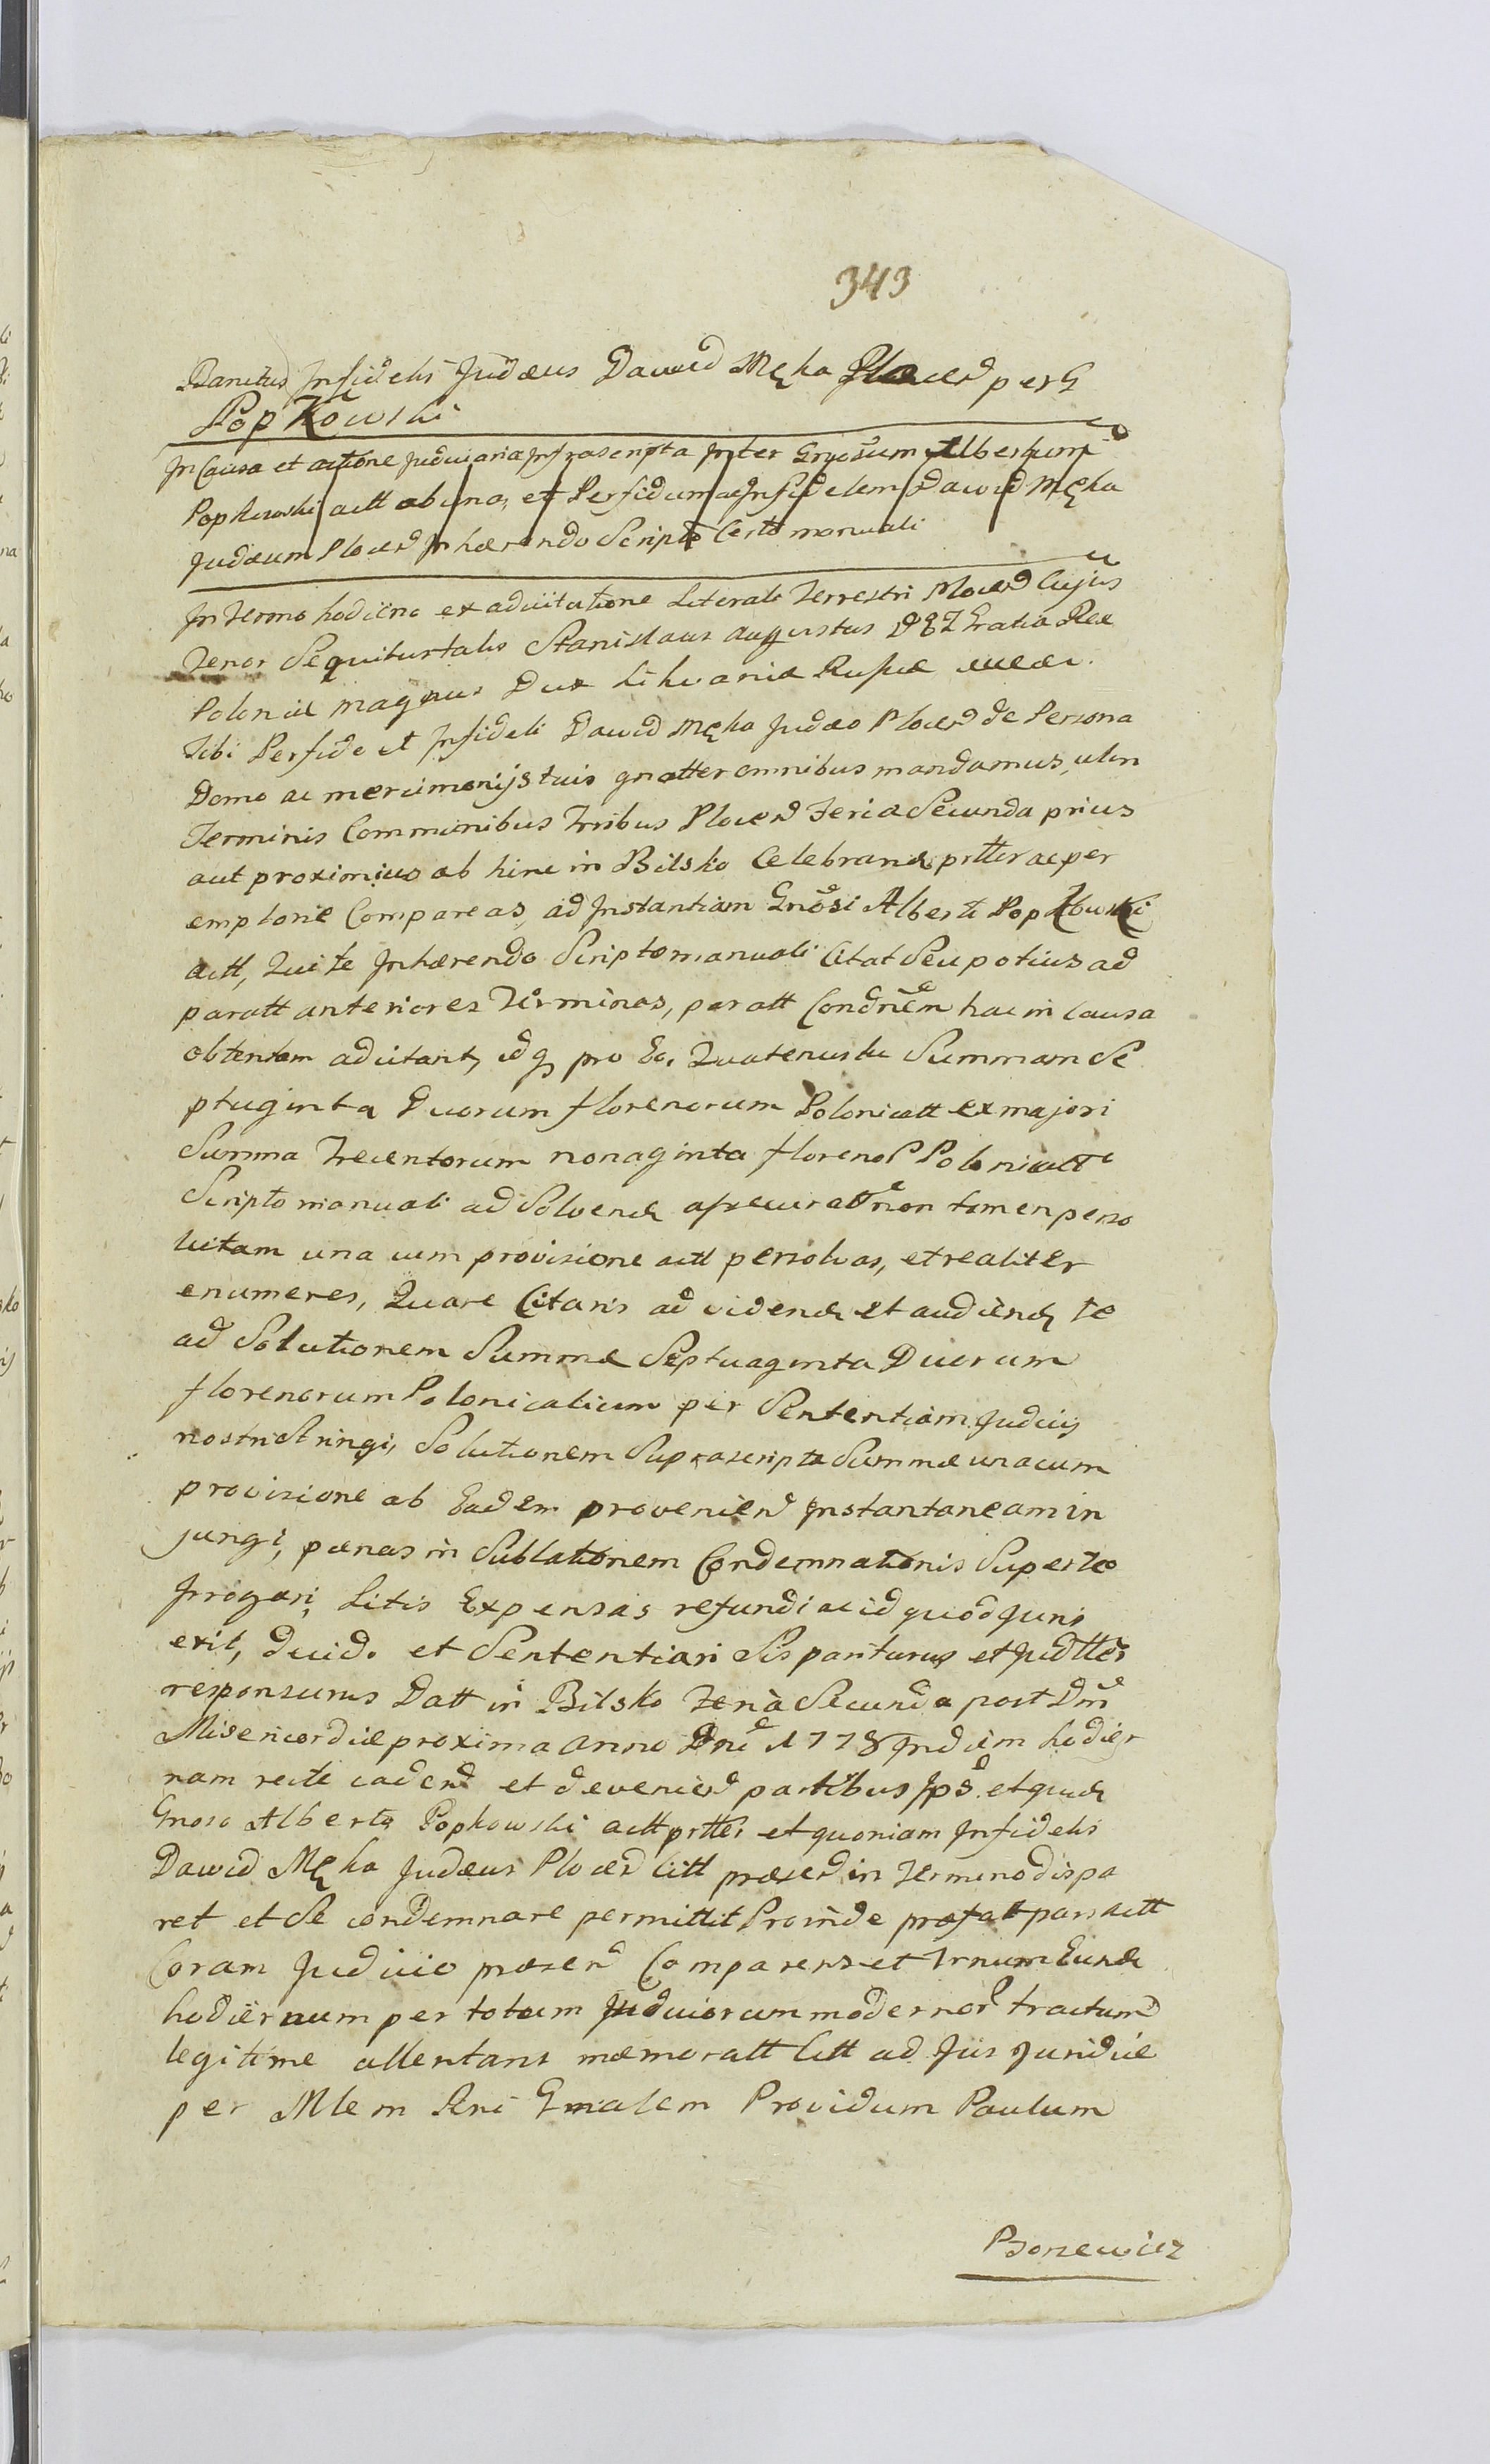 343
Banitus Infidelis Judæus Dawid Męka Plocen per G
Popkowski
In Causa et actione judiciaria Infrascripta Inter Gnosum Albertum
Popkowski actt ab una, et Perfidum ac Infidelem Dawid Męka
Judæum Plocen Inhærendo Scripto Certo manuali
In Termo hodierno ex adcitatione Literali Terrestri Plocen Cujus
Tenor Sequitur talis Stanislaus Augustus DEI Gratia Rex
Poloniæ magnus Dux Lithvaniæ Russiæ
Tibi Perfido et Infideli Dawid Męka Judæo Plocen de Persona
Domo ac mercimonijs tuis gnatter omnibus mandamus, ut in
Terminis Communibus Tribus Plocen Feria Secunda prius
aut proximius ab hinc in Bilsko Celebrand ptter ac per
emptorie Compareas, ad Instantiam Gnosi Alberti Popkowski
actt, Qui te Inhærendo Scripto manuali Citat Seu potius ad
paratt anteriores Terminos, paratt Condnem hac in causa
obtentam adcitant, idq pro Eo, Quatenus tu Summam Se
ptuginta Duorum florenorum Polonicatt ex majori
Summa Trecentorum nonaginta florenor Polonicatt
Scripto manuali ad Solvend assecuratt non tamen perso
lutam una cum provisione actt persolvas, et realiter
enumeres, Quare Citaris ad vidend et audiend te
ad Solutionem Summæ Septuaginta Duorum
florenorum Polonicalium per Sententiam Judicij
nostri Stringi, Solutionem Suprascriptæ Summæ una cum
provisione ab Eadem provenien Instantaneam in
jungi, pænas in Sublationem Condemnationis Super te
Irrogari, Litis Expensas refundi ac id quod Juris
erit, decid. et Sententiari Sis pariturus et Judtter
responsurus Datt in Bilsko Feria Secunda post Dnm
Misericordiæ proxima Anno Dni 1778 In diem hodier
nam recte caden et devenien partibus Ips et quid
Gnoso Alberto Popkowski actt ptter et quoniam Infidelis
Dawid Męka Judæus Plocen Citt præsen in Termino dispa
ret et Se condemnare permittit Proinde præfat pars actt
Coram Judicio præsen Comparens et Trnum Eund
hodiernum per totum Judiciorum modernor tractum
legitime attentans mæmoratt Citt ad Jus Juridice
per Mlem Rni Gnalem Providum Paulum
Bonewicz